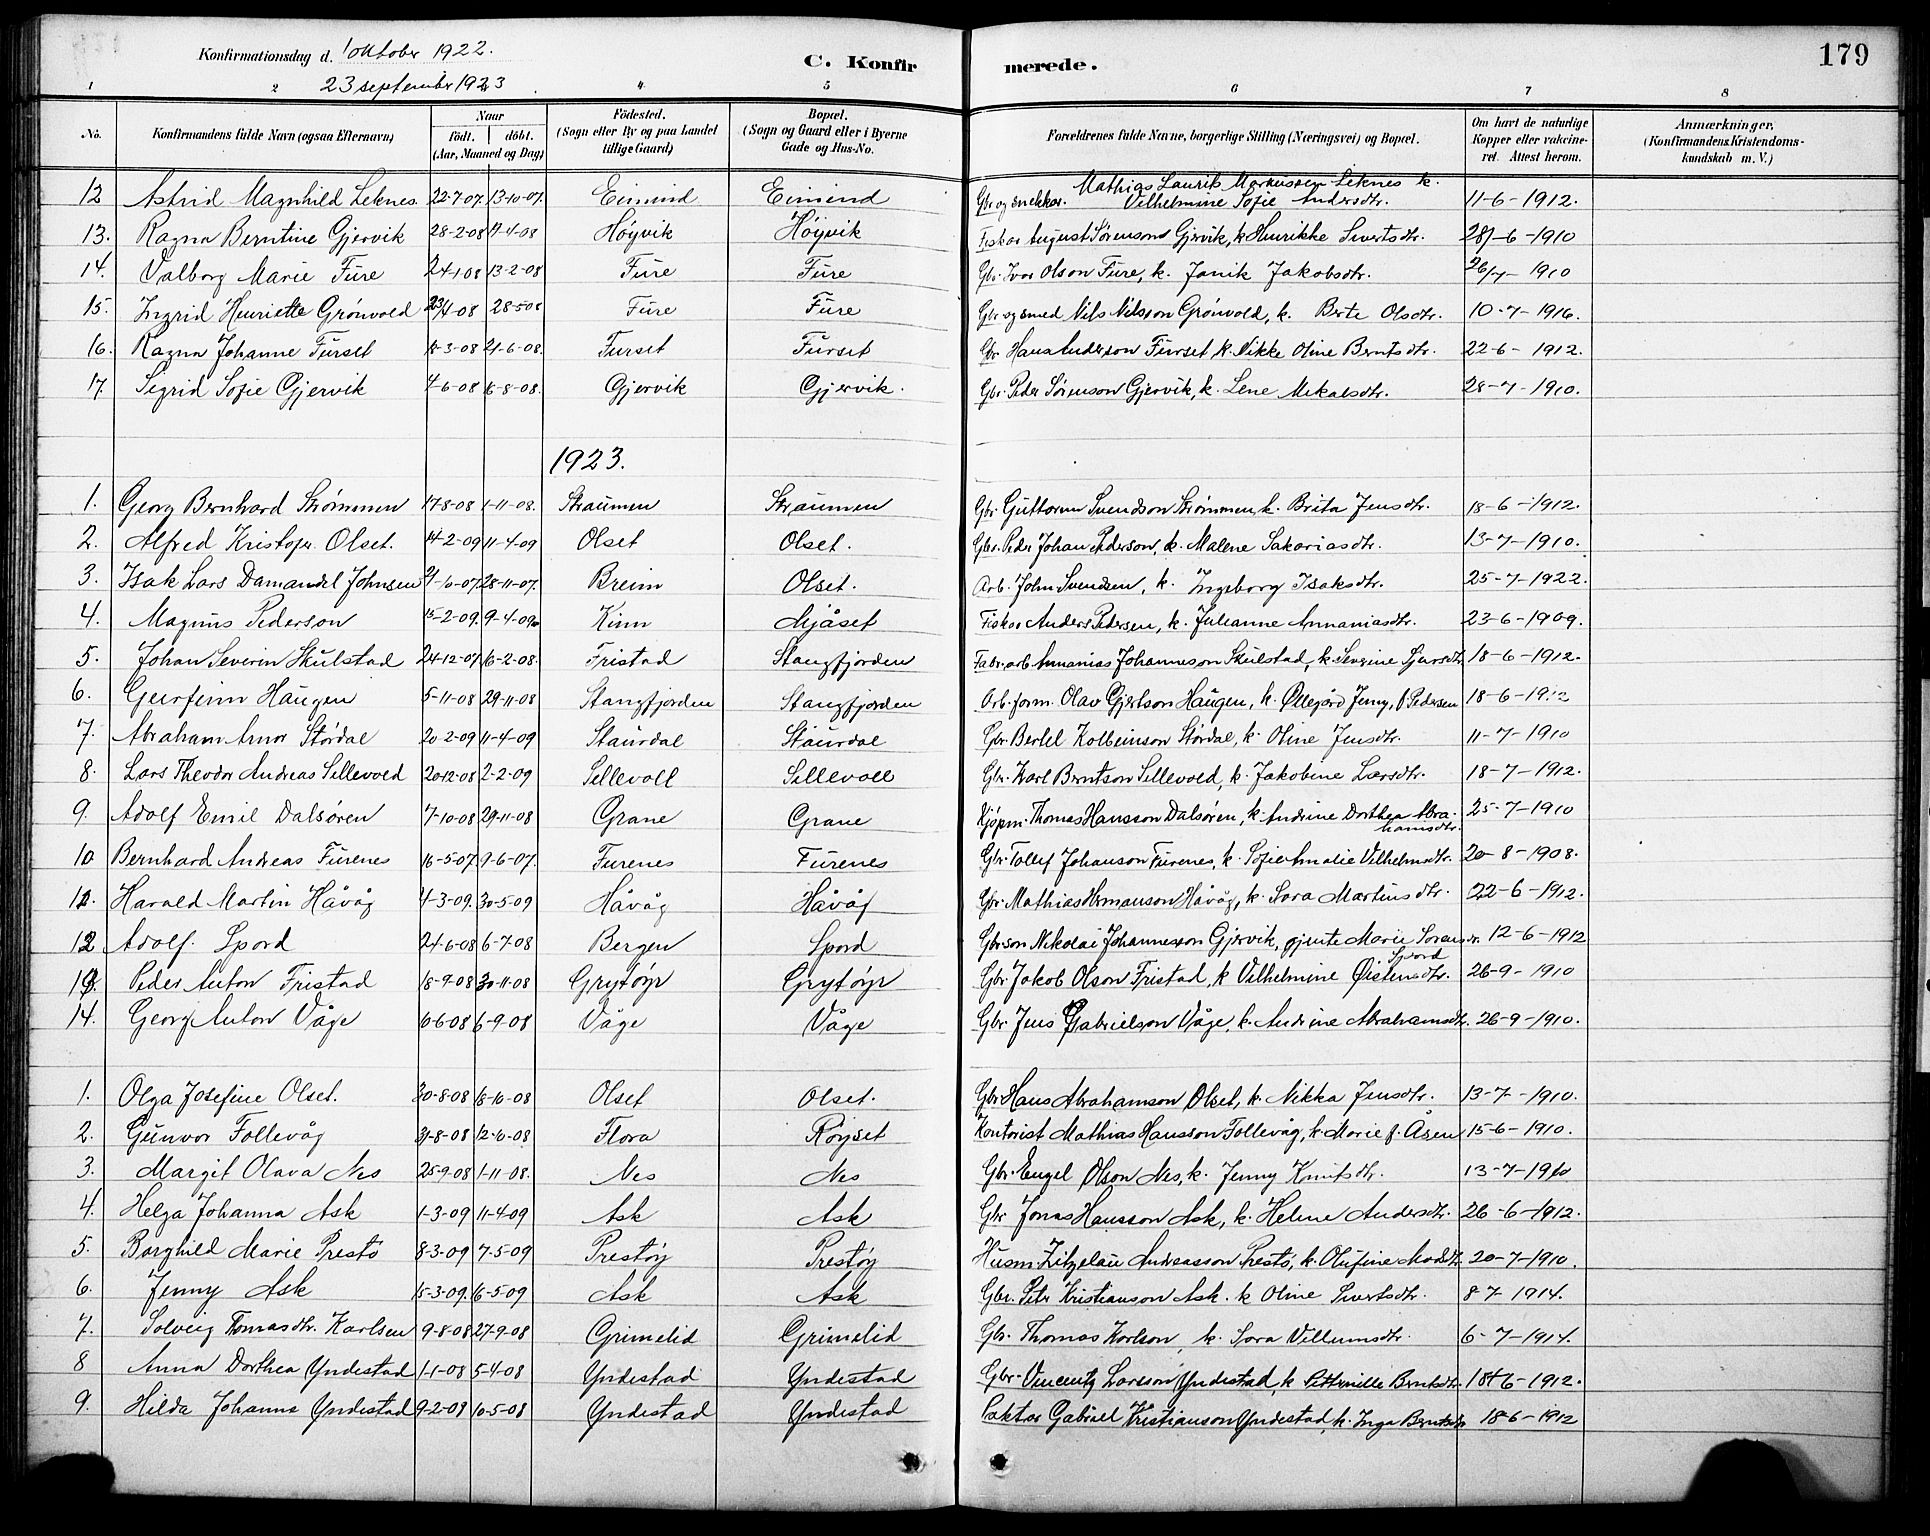 179
Konfirmationsdag d. 1 oktober 1922.
23 september 1923
C. Konfirmerede.
1 2 4 5 6 7 8
No. Konfirmandens fulde Navn (ogsaa Efternavn) Naar født. døbt. (Aar, Maaned og Dag) Fødested. (Sogn eller By og paa Landet tillige Gaard) Bopæl. (Sogn og Gaard eller i Byerne Gade og Hus-No. Forældrenes fulde Navne, borgerlige Stilling (Næringsvei) og Bopæl. Om havt de naturlige Kopper eller vakcineret. Attest herom. Anmærkninger. (Konfirmandens Kristendomskundskab m. V.)
12 Astrid Magnhild Leknes. 22-7-07. 13-10-07. Eimind Eimind Gbr og snekker. Mathias Laurits Markussen Leknes k. Vilhelmine Sofie Andersdtr. 11-6-1912.
13. Ragna Berntine Gjervik 28-2-08 17-4-08 Høyvik Høyvik Fisker August Sørenson Gjervik, k. Henrikke Sivertsdtr. 28-6-1910
14. Valborg Marie Fure 24-1-08 13-2-08 Fure Fure Gbr. Ivar Olson Fure, k. Janik Jakobsdtr. 26/7-1910
15. Ingrid Henriette Grønvold 23/4-08 28-5-08 Fure Fure Gbr og smed Nils Nilsson Grønvold, k. Berte Olsdtr. 10-7-1916.
16. Ragna Johanne Furset 18-3-08 21-6-08. Furset Furset Gbr. Hans Anderson Furset k. Nikke Oline Berntsdtr. 22-6-1912.
17. Sigrid Sofie Gjervik 4-6-08 16-8-08. Gjervik Gjervik. Gbr. Peder Sørenson Gjervik, k. Lene Mikalsdtr. 28-7-1910.
1923.
1. Georg Bernhard Strømmen 17-8-08 1-11-08. Straumen Straumen Gbr. Guttorm Svendson Strømmen, k. Brita Jensdtr. 18-6-1912.
2. Alfred Kristofer Olset. 14-2-09 11-4-09 Olset Olset. Gbr. Peder Johan Pederson, k. Malene Sakariasdtr. 13-7-1910.
3. Isak Lars Damandel Johnsen 21-6-07. 28-11-07. Breim Olset. Arb. John Svendsen, k. Ingeborg Isaksdtr. 25-7-1922.
4. Magnus Pederson 15-2-09. 9-4-09. Kinn Mjåset Fisker Anders Pedersen, k. Julianne Annaniasdtr. 23-6-1909.
5. Johan Severin Skulstad 24-12-07 16-2-08. Fristad Stangfjorden Fabr. arb Annanias Johannesson Skulstad, k. Severine Sjursdtr 18-6-1912.
6. Geirfinn Haugen 5-11-08 29-11-08 Stangfjorden Stangfjorden Arb. form. Olav Gjertson Haugen, k. Ollegård Jenny, f. Pedersen 18-6-1912
7. Abraham Arnor Stórdal 20-2-09 11-4-09 Staurdal Staurdal Gbr. Bertel Kolbeinson Stórdal, k. Oline Jensdtr. 11-7-1910
8. Lars Theodor Andreas Sellevold 20-12-08 2-2-09 Sellevoll Sellevoll Gbr. Karl Berntson Sellevold, k. Jakobine Larsdtr. 18-7-1912.
9. Adolf Emil Dalsøren 7-10-08 29-11-08 Grane Grane Kjøpm. Thomas Hansson Dalsøren, k. Andrine Dorthea Abrahamsdtr. 25-7-1910
10 Bernhard Andreas Furenes 16-5-07 9-6-07. Furenes Furenes Gbr. Tollef Johanson Furenes, k. Sofie Amalie Vilhelmsdtr. 20-8-1908.
11. Harald Martin Håvåg 4-3-09. 30-5-09 Håvåg Håvåg Gbr. Mathias Hermanson Håvåg, k. Sara Martinsdtr. 22-6-1912.
12 Adolf. Spord 24-6-08 6-7-08 Bergen Spord Gbr.son Nikolai Johannesson Gjervik, gjente Marie Sorensdr. Spord 12-6-1912
13. Peder Anton Fristad 18-9-08 30-11-08 Grytøyr Grytøyr Gbr. Jakob Olson Fristad, k. Vilhelmine Øistensdtr. 26-9-1910
14. Georg Anton Våge 10-6-08 6-9-08 Våge Våge Gbr. Jens Gabrielson Våge, k. Andrine Abrahamsdtr. 26-9-1910.
1. Olga Josefine Olset. 30-8-08 18-10-08 Olset Olset. Gbr. Hans Abrahamson Olset, k. Nikka Jensdtr. 13-7-1910.
2. Gunvor Follevåg 31-8-08 12-6-08 Flora Røyset Kontorist Mathias Hansson Follevåg, k. Marie f. Åsen 15-6-1910.
3. Margit Olava Nes 25-9-08 1-11-08. Nes Nes Gbr. Engel Olson Nes, k. Jenny Knutsdtr. 13-7-1910
4. Helga Johanna Ask 1-3-09 11-4-09 Ask Ask Gbr Jonas Hansson Ask, k. Helene Andersdtr. 26-6-1912.
5. Borghild Marie Prestø 8-3-09 7-5-09 Prestøy Prestøy Husm. Zitzelau Andreasson Prestø, k. Olufine Madsdtr 20-7-1910.
6. Jenny Ask 15-3-09. 16-5-09 Ask Ask Gbr. Peter Kristianson Ask. k Oline Sivertsdtr. 8-7-1914.
7. Solveig Tomasdtr. Karlsen 9-8-08 27-9-08 Grimelid Grimelid Gbr. Thomas Karlson, k. Sara Villumsdtr. 6-7-1914.
8 Anna Dorthea Yndestad 1-1-08 5-4-08 Yndestad Yndestad Gbr. Vincentz Larsson Yndestad, k. Petternille Berntsdtr. 18-6-1912.
9. Hilda Johanne Yndestad 9-2-08 10-5-08 Yndestad Yndestad Paktar Gabriel Kristianson Yndestad, k. Inga Berntsdtr 18-6-1912